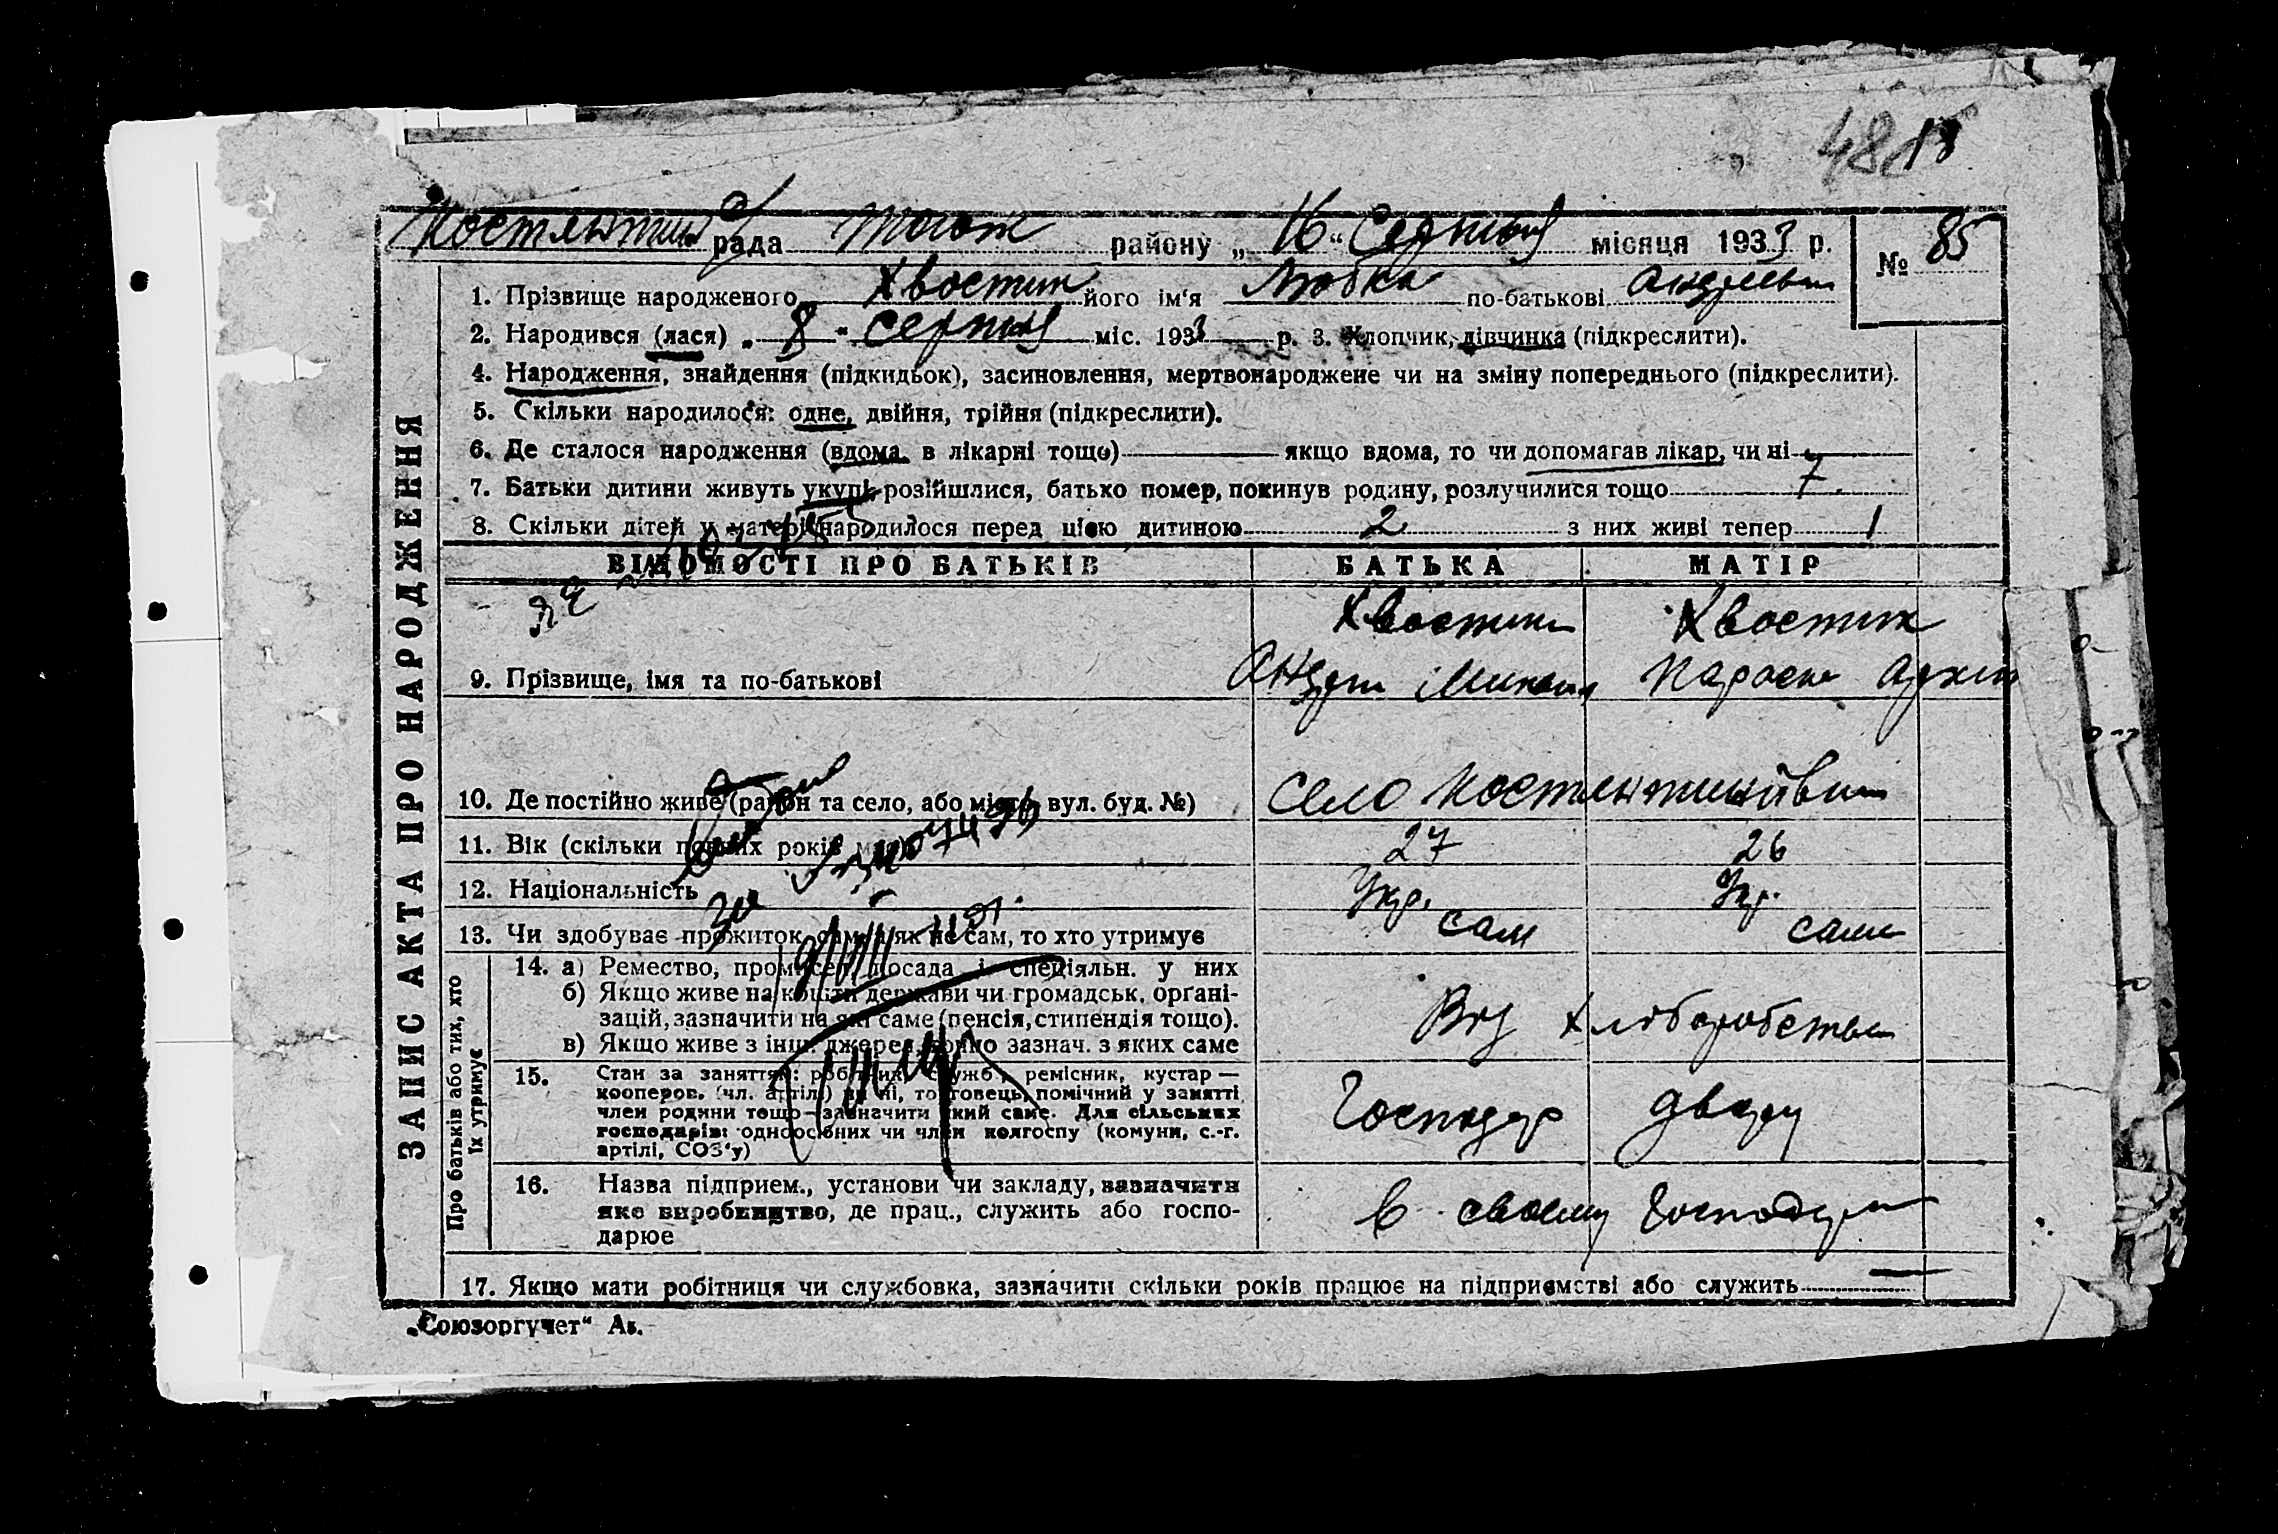 48 18
Костянтин с/рада району „16“ Серпня місяця 1933 р. № 85
1. Прізвище народженого Хвостик його ім‘я Любка по-батькові Андріевн
2. Народився (лася) „8“ Серпня міс. 1933 р. 3. Хлопчик, дівчинка (підкреслити).
4. Народження, знайдення (підкидьок), засиновлення, мертвонароджене чи на зміну попереднього (підкреслити).
5. Скільки народилося: одне, двійня, трійня (підкреслити).
6. Де сталося народження (вдома, в лікарні тощо) якщо вдома, то чи допомагав лікар, чи ні
7. Батьки дитини живуть укупі, розійшлися, батько помер, покинув родину, розлучилися тощо
8. Скільки дітей у матері народилося перед цією дитиною 2 з них живі тепер 1
ВІДОМОСТІ ПРО БАТЬКІВ БАТЬКА МАТІР
Хвостик Хвостик
9. Прізвище, імя та по-батькові
10. Де постійно живе (район та село, або місто, вул. буд. №) село Костянтинівки
11. Вік (скільки повних років має) 27 26
12. Національність Укр. Укр.
13. Чи здобуває прожиток сам, а як не сам, то хто утримує сам сама
14. а) Ремество, промисел, посада і спеціяльн. у них
б) Якщо живе на кошти держави чи громадськ. орґані-
зацій, зазначити на які саме (пенсія, стипендія тощо).
в) Якщо живе з інш. джерел, зазнач. з яких саме
Від хліборобства
15. Стан за заняттям: робітник, службов., ремісник, кустар —
кооперов. (чл. артілі) чи ні, торговець, помічний у занятті
член родини тощо — зазначити який саме. Для сільських
господарів: одноосібних чи член колгоспу (комуни, с.-г.
артілі, СОЗ‘у)
Господар двору
16. Назва підприєм., установи чи закладу, зазначити
яке виробництво, де прац., служить або госпо-
дарює
в своему
17. Якщо мати робітниця чи службовка, зазначити скільки років працює на підприємстві або служить —
ЗАПИС АКТА ПРО НАРОДЖЕННЯ
Про батьків або тих, хто
їх утримує
„Союзоргучет“